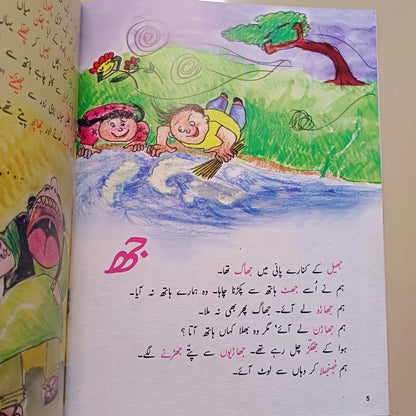 جھ
جھیل کے کنارے پانی میں جھاگ تھا۔
ہم نے اُسے جھٹ ہاتھ سے پکڑنا چاہا۔ وہ ہمارے ہاتھ نہ آیا۔
ہم جھاڑو لے آئے۔ جھاگ پھر بھی نہ ملا۔
ہم جھاڑن لے آئے، مگر وہ بھلا کہاں ہاتھ آتا ؟
ہوا کے جھکّڑ چل رہے تھے۔ جھاڑیوں سے پتّے جھڑنے لگے۔
ہم جھنجھلا کر وہاں سے لوٹ آئے۔
5